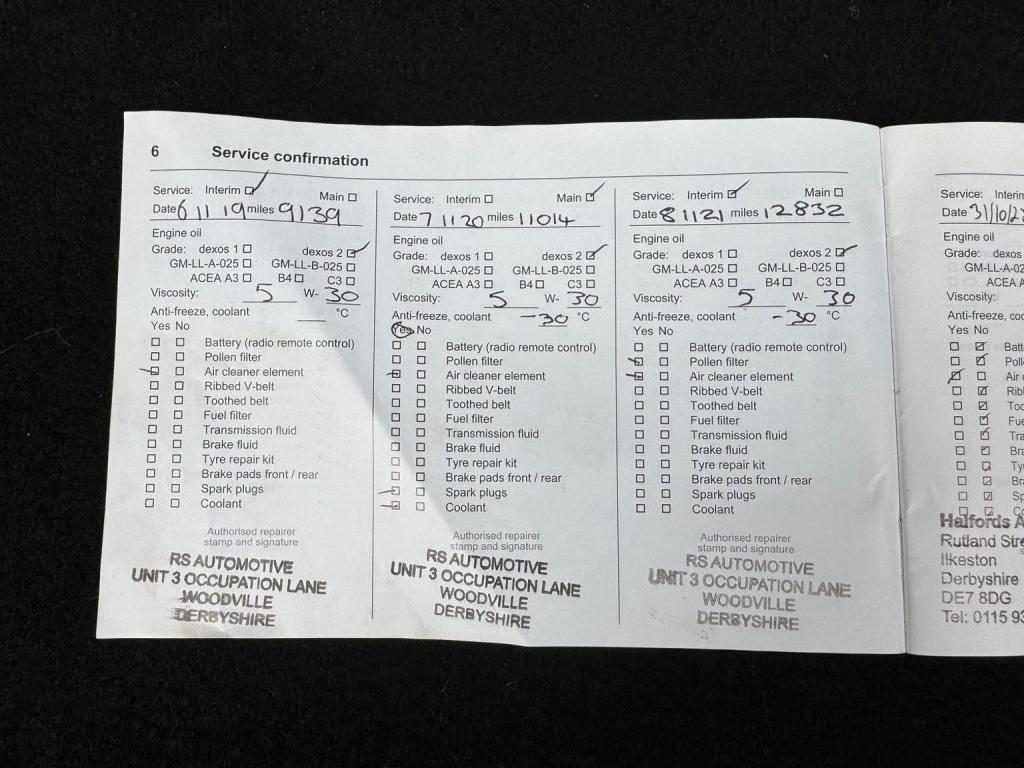 6 Service confirmation
Service: Interim Main
Date 6 11 19 miles 9139
Engine oil
Grade: dexos 1 dexos 2
GM-LL-A-025 GM-LL-B-025
ACEA A3 B4 C3
Viscosity: 5 W- 30
Anti-freeze, coolant °C
Yes No
Battery (radio remote control)
Pollen filter
Air cleaner element
Ribbed V-belt
Toothed belt
Fuel filter
Transmission fluid
Brake fluid
Tyre repair kit
Brake pads front / rear
Spark plugs
Coolant
Authorised repairer
stamp and signature
RS AUTOMOTIVE
UNIT 3 OCCUPATION LANE
WOODVILLE
DERBYSHIRE
Service: Interim Main
Date 7 11 20 miles 11014
Engine oil
Grade: dexos 1 dexos 2
GM-LL-A-025 GM-LL-B-025
ACEA A3 B4 C3
Viscosity: 5 W- 30
Anti-freeze, coolant -30 °C
Yes No
Battery (radio remote control)
Pollen filter
Air cleaner element
Ribbed V-belt
Toothed belt
Fuel filter
Transmission fluid
Brake fluid
Tyre repair kit
Brake pads front / rear
Spark plugs
Coolant
Authorised repairer
stamp and signature
RS AUTOMOTIVE
UNIT 3 OCCUPATION LANE
WOODVILLE
DERBYSHIRE
Service: Interim Main
Date 8 11 21 miles 12832
Engine oil
Grade: dexos 1 dexos 2
GM-LL-A-025 GM-LL-B-025
ACEA A3 B4 C3
Viscosity: 5 W- 30
Anti-freeze, coolant -30 °C
Yes No
Battery (radio remote control)
Pollen filter
Air cleaner element
Ribbed V-belt
Toothed belt
Fuel filter
Transmission fluid
Brake fluid
Tyre repair kit
Brake pads front / rear
Spark plugs
Coolant
Authorised repairer
stamp and signature
RS AUTOMOTIVE
UNIT 3 OCCUPATION LANE
WOODVILLE
DERBYSHIRE
Service: Interim
Date 31/10/2
Engine oil
Grade: dexos
GM-LL-A-02
ACEA A
Viscosity:
Anti-freeze, coolant
Yes No
Batt
Poll
Air c
Rib
Too
Fue
Tra
Bra
Ty
Bra
Sp
Co
Halfords A
Rutland Stre
Ilkeston
Derbyshire
DE7 8DG
Tel: 0115 93